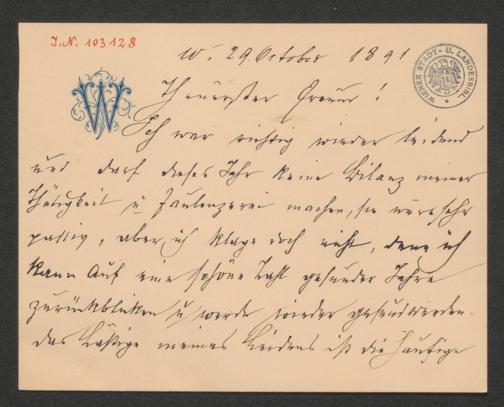 J. N. 103128
W. 29. October 1891
WIENER STADT- U. LANDESBIBL.
W
Theuerster Freund!
Ich war richtig wieder leidend
und darf dieses Jahr keine Bilanz meiner
Thätigkeit u Faulenzerei machen, sie wäre sehr
passiv, aber ich klage doch nicht, denn ich
kann auf eine schöne Zahl gesunder Jahre
zurückblicken u werde wieder gesund werden.
Das Lästige meines Leidens ist die häufige